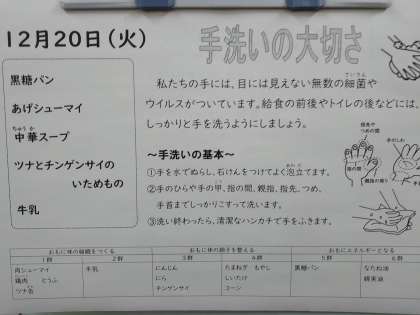 12月20日（火）
手洗いの大切さ
黒糖パン
あげシューマイ
ちゅう か
中華スープ
ツナとチンゲンサイの
いためもの
牛乳
私たちの手には、目には見えない無数の細菌や
さいきん
ウイルスがついています。給食の前後やトイレの後などには、
しっかりと手を洗うようにしましょう。
～手洗いの基本～
①手を水でぬらし、石けんをつけてよく泡立てます。
あわ だ
②手のひらや手の甲、指の間、親指、指先、つめ、
こう
手首までしっかりこすって洗います。
③洗い終わったら、清潔なハンカチで手をふきます。
指先や
つめの間
指の間
手のしわ
親指の周り
おもに体の組織をつくる
おもに体の調子を整える
おもにエネルギーとなる
1群 2群 3群 4群 5群 6群
肉シューマイ 牛乳 にんじん たまねぎ もやし 黒糖パン なたね油
鶏肉 とうふ にら しいたけ 綿実油
ツナ缶 チンゲンサイ コーン